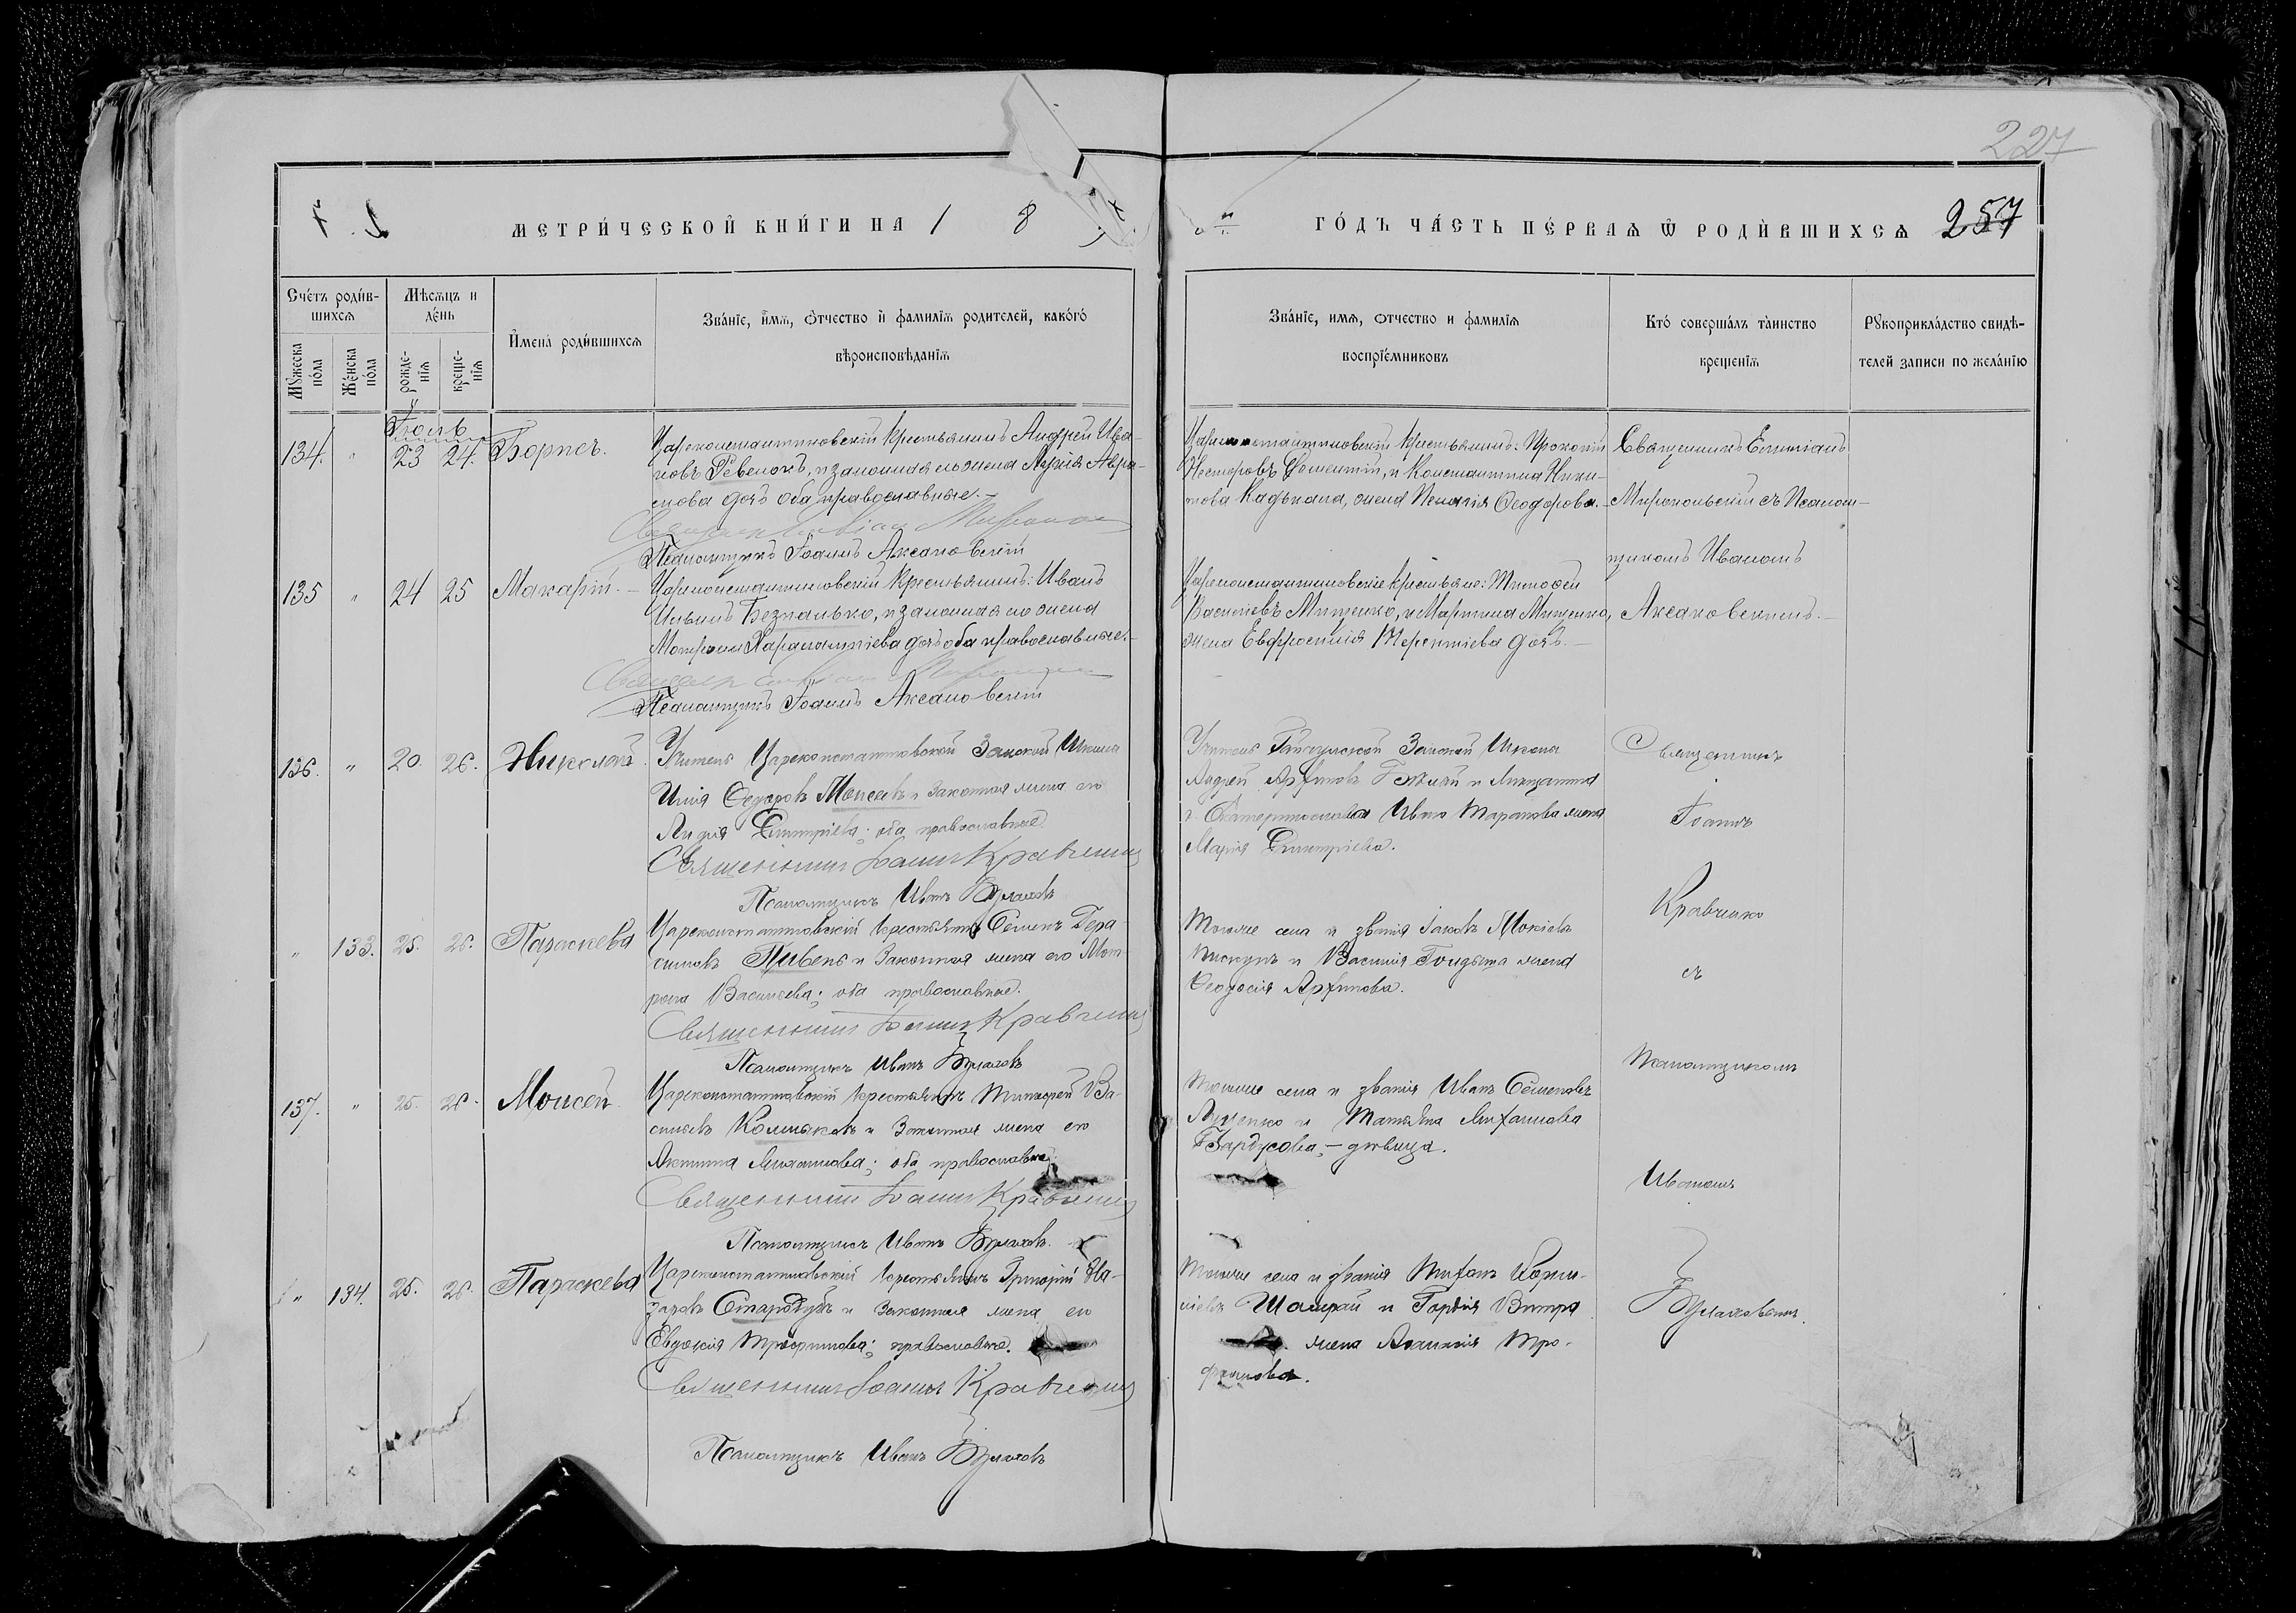 227
МЕТРИ́ЧЕСКОЙ КНИ́ГИ НА 1 8
ГО́ДЪ ЧА́СТЬ ПЕ́РВАѦ Ѿ РОДИ́ВШИХСѦ 257
Сче́тъ роди́в-
шихсѧ
Мѣ́сѧцъ и
де́нь
Мꙋ́жеска
по́ла
Же́нска
по́ла
рожде-
нїѧ
креще-
нїѧ
И҆мена̀ роди́вшихсѧ
Зва́нїе, и҆́мѧ, ѻ҆́тчество и҆ фамилїѧ родителей, како́гѡ
вѣроисповѣданїѧ
Зва́нїе, имѧ, ѻтчество и фамилїѧ
воспрїе́мниковъ
Кто́ соверша́лъ та̀инство
крещенїѧ
Рꙋкоприкла́дство свидѣ-
телей записи по жела́нїю
Іюль
134. " 23 24. Борисъ.
Цареконстантиновскій крестьянинъ Андрей Ива-
новъ Ревенокъ, и законная его жена Марія Авра-
мова дочь оба православные.
Псаломщикъ Іоаннъ Аксановскій
Цареконстантиновскій крестьянинъ: Прокопій
Несторовъ и Константина Ники-
това жена Пелагія Ѳеодорова.
Священникъ Емиліанъ
съ Псалом-
щикомъ Иваномъ
Аксановскимъ.
135 " 24 25 Макарій.
Цареконстантиновскій крестьянинъ: Иванъ
Ильинъ Безпалько, и законная его жена
Матрона Харалампіева дочь оба православные.
Псаломщикъ Іоаннъ Аксановскій
Цареконстантиновскіе крестьяне: Тимоѳей
Васильевъ Мищенко, и Мартина Мищенко,
жена Евфросинія Терентіева дочь.
136. " 20. 26. Николай.
Учитель Цареконстантиновской Земской Школы
Илія Ѳедоровъ Моисеевъ и законная жена его
Лидія Димитріева; оба православные.
Священникъ Іоаннъ Кравченко
Псаломщикъ Иванъ Булаховъ
Учитель Земской Школы
Андрей Архиповъ и
г. Екатеринослава Ивана Таранова жена
Марія Димитріева.
Священникъ
Іоаннъ
Кравченко
съ
псаломщикомъ
Иваномъ
Булаховымъ.
" 133. 25. 26. Параскева
Цареконстантиновскій крестьянинъ Семенъ Гера-
симовъ Пивень и законная жена его Мат-
рона Васильева; оба православные.
Священникъ Іоаннъ Кравченко
Псаломщикъ Иванъ Булаховъ
Того же села и званія Іаковъ Мокіевъ
Пискунъ и Василія жена
Ѳеодосія Архипова.
137. " 25. 26. Моисей
Цареконстантиновскій крестьянинъ Тимоѳей Ва-
сильевъ Колпаковъ и законная жена его
Акилина Михаилова; оба православные.
Священникъ Іоаннъ Кравченко
Псаломщикъ Иванъ Булаховъ.
Того же села и званія Иванъ Семеновъ
и Татьяна Михаилова
дѣвица.
" 134. 25. 26. Параскева
Цареконстантиновскій крестьянинъ Григорій На-
заровъ Стародубъ и законная жена его
Евдокія Трофимова; православные.
Священникъ Іоаннъ Кравченко
Псаломщикъ Иванъ Булаховъ
Того же села и званія Корни-
ліевъ Шамрай и Гордія
жена Тро-
фимова.